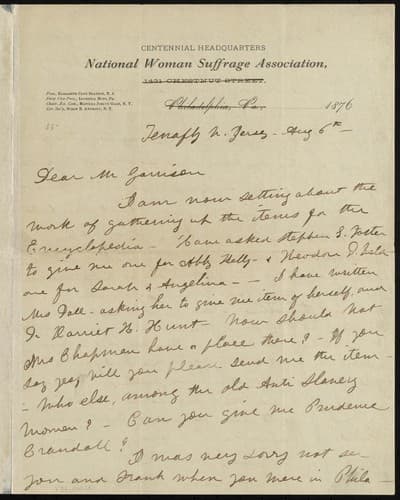 CENTENNIAL HEADQUARTERS
National Woman Suffrage Association,
1431 CHESTNUT STREET.
Philadelphia, Pa. 1876
Pres., ELIZABETH CADY STANTON, N. J.
Chair. Ex. Com., MATILDA JOSLYN GAGE, N. Y.
Cor. Sec'y, SUSAN B. ANTHONY, N. Y.
Tenafly N. Jersey - Aug 6th -
Dear Mr Garrison
I am now setting about the
work of gathering up the items for the
Encyclopedia - Have asked Stephen S. Foster
to give me one for Abby Kelly - & Theodore D. Weld
one for Sarah & Angelina - - I have written
Mrs Dall - asking her to give me item of herself, and
Dr Harriet H. Hunt - Now should not
Mrs Chapman have a place there? - If you
say yes, will you please send me the item -
- Who else, among the old Anti Slavery
women? - Can you give me Prudence
Crandall?
I was very sorry not se-
you and Frank when you were in Phila -